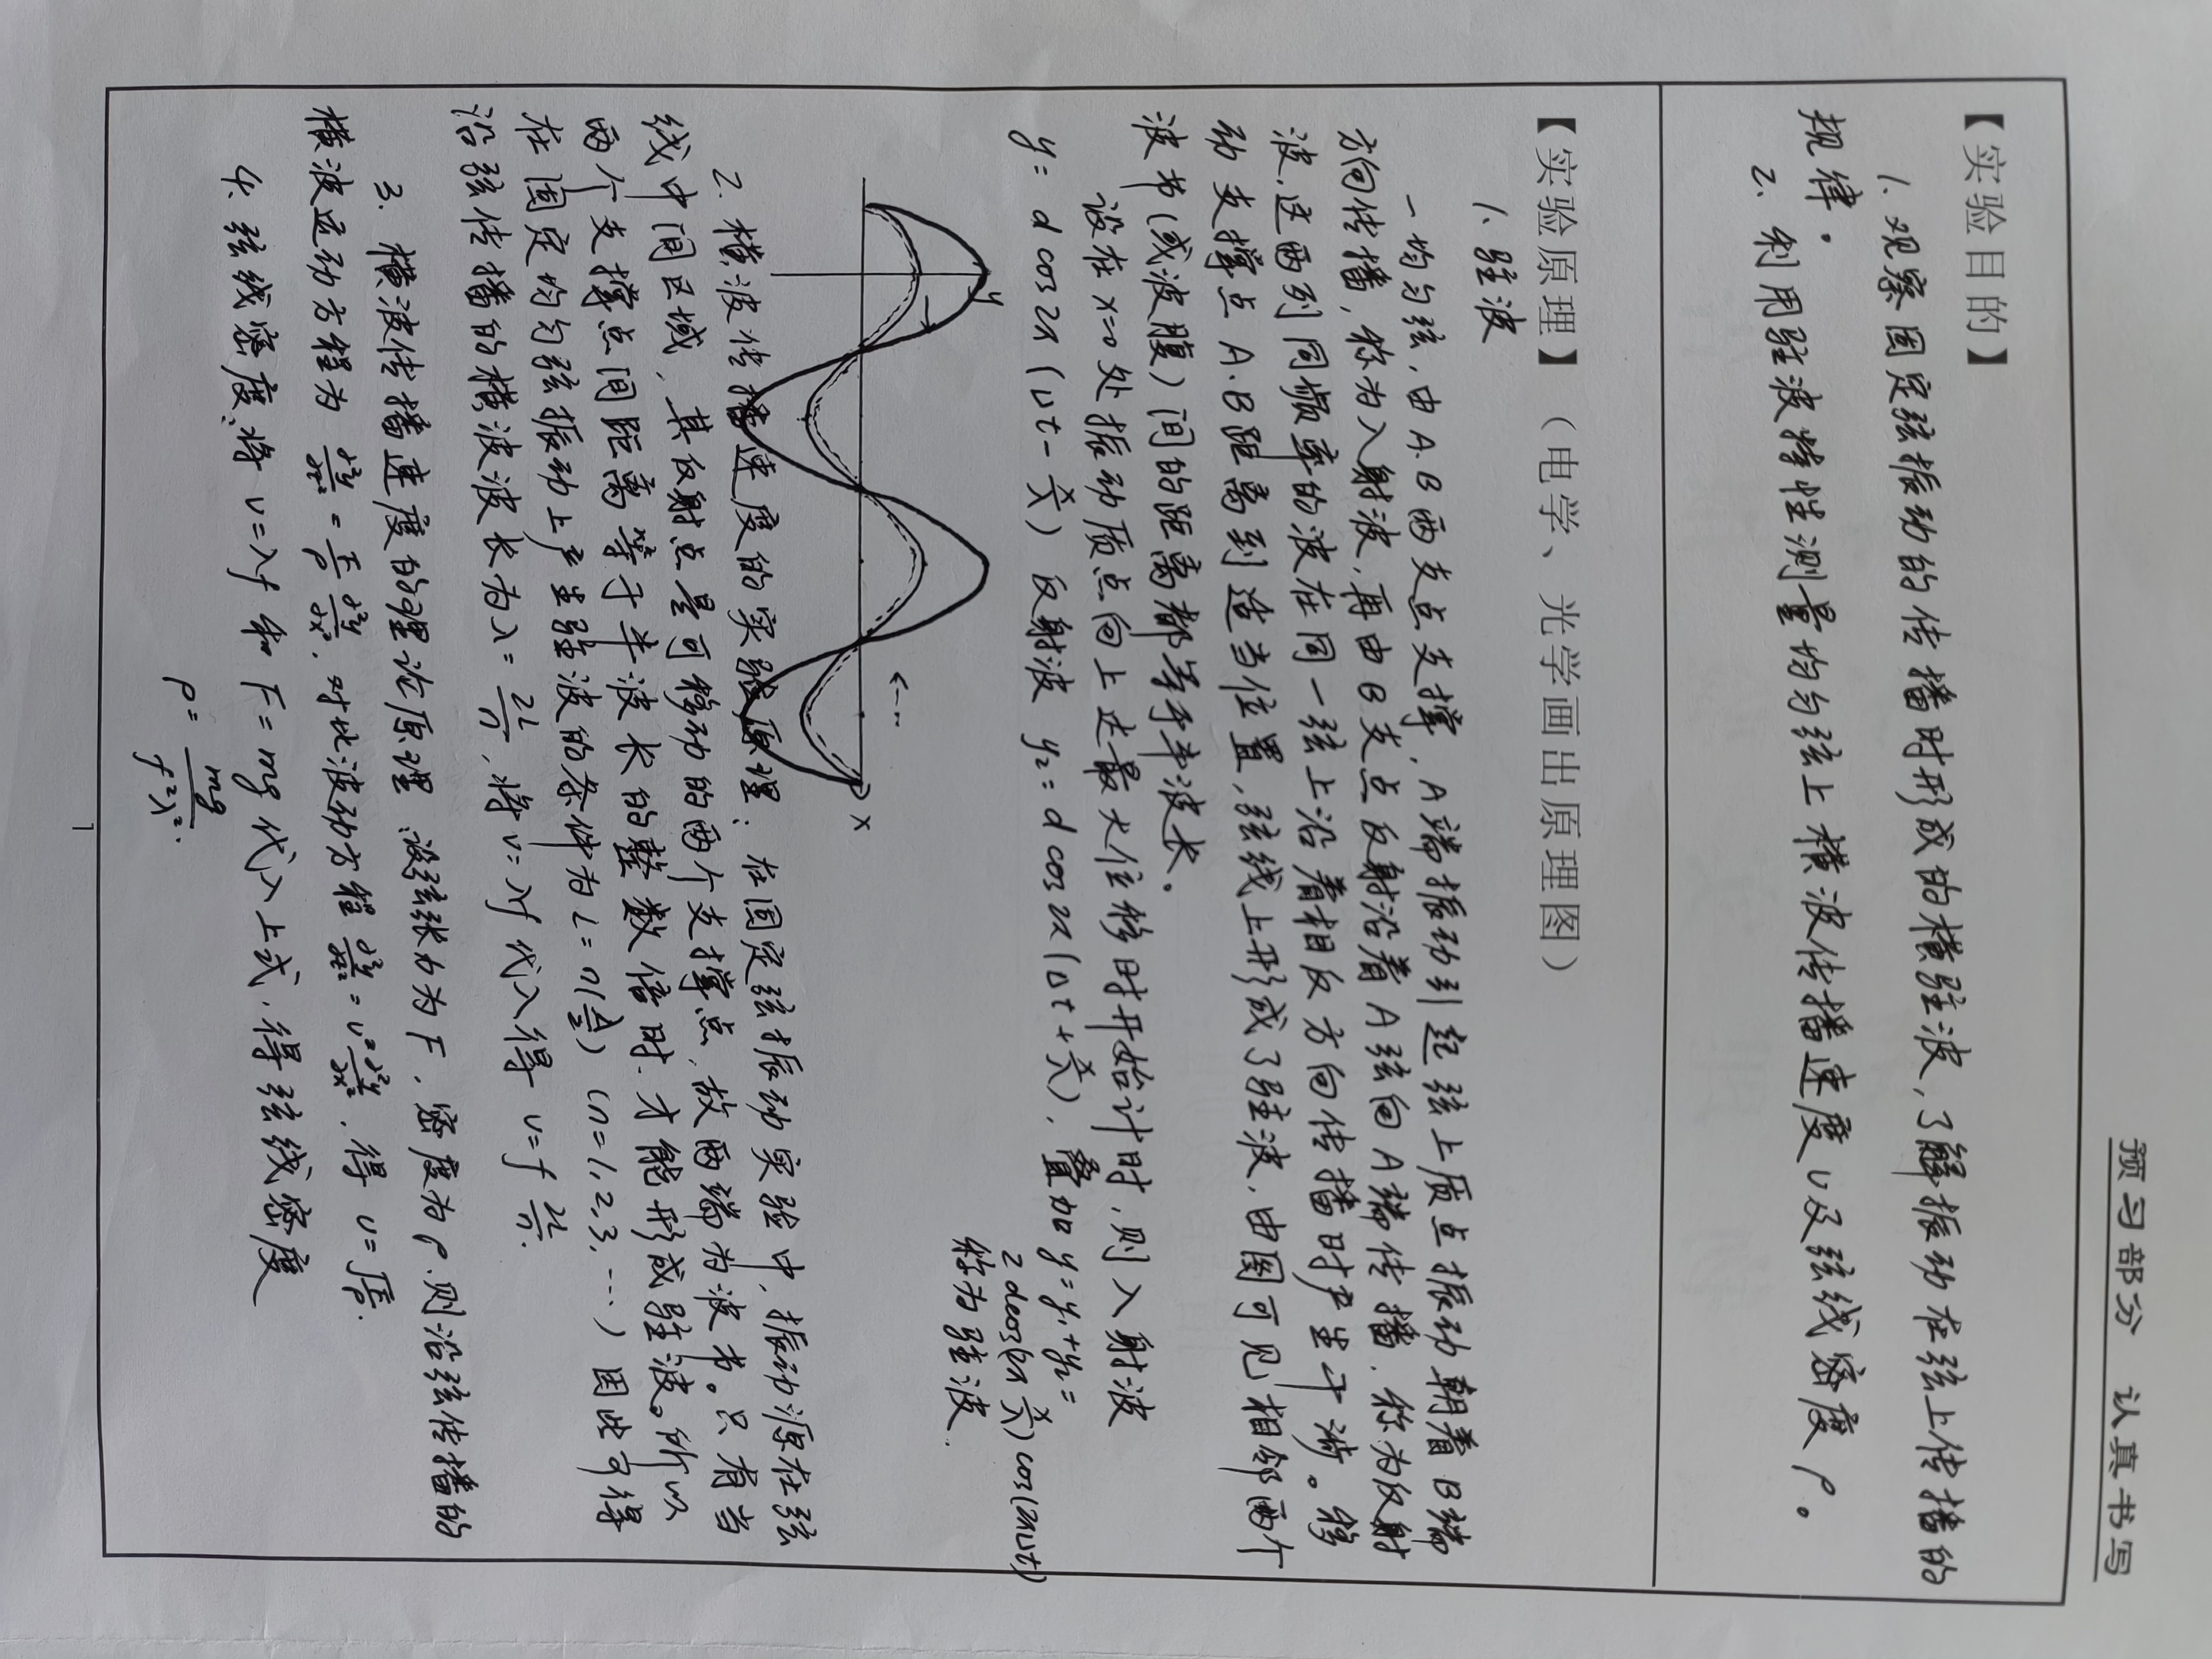 预习部分 认真书写
【实验目的】
1. 观察固定弦振动的传播时形成的横驻波，了解振动在弦上传播的
规律。
2. 利用驻波特性测量均匀弦上横波传播速度υ及弦线密度ρ。
【实验原理】（电学、光学画出原理图）
1. 驻波
一均匀弦，由A.B两支点支撑，A端振动引起弦上质点振动朝着B端
方向传播，称为入射波，再由B支点反射沿着A弦向A端传播，称为反射
波，这两列同频率的波在同一弦上沿着相反方向传播时产生干涉。移
动支撑点A.B距离到适当位置，弦线上形成了驻波，由图可见相邻两个
波节(或波腹)间的距离都等于半波长。
设在x=0处振动质点向上达最大位移时开始计时，则入射波
y= d cos2π(υt-x/λ) 反射波 y₂=d cos2π(υt+x/λ)，叠加y=y₁+y₂=
2dcos(2π x/λ)cos(2πυt)
称为驻波.
y
x
2. 横波传播速度的实验原理：在固定弦振动实验中，振动源在弦
线中间区域，其反射点是可移动的两个支撑点，故两端为波节。只有当
两个支撑点间距离等于半波长的整数倍时，才能形成驻波。所以
在固定均匀弦振动上产生驻波的条件为L=n(λ/2) (n=1,2,3,…) 因此可得
沿弦传播的横波波长为λ=2L/n，将v=λf代入得 v=f 2L/n.
3. 横波传播速度的理论原理 设弦张力为F，密度为ρ，则沿弦传播的
横波运动方程为 ∂²y/∂t² = F/ρ ∂²y/∂x²，对比波动方程 ∂²y/∂t² = v² ∂²y/∂x²，得 v=√F/ρ.
4. 弦线密度，将 v=λf 和 F=mg 代入上式，得弦线密度
ρ= mg/f²λ².
1